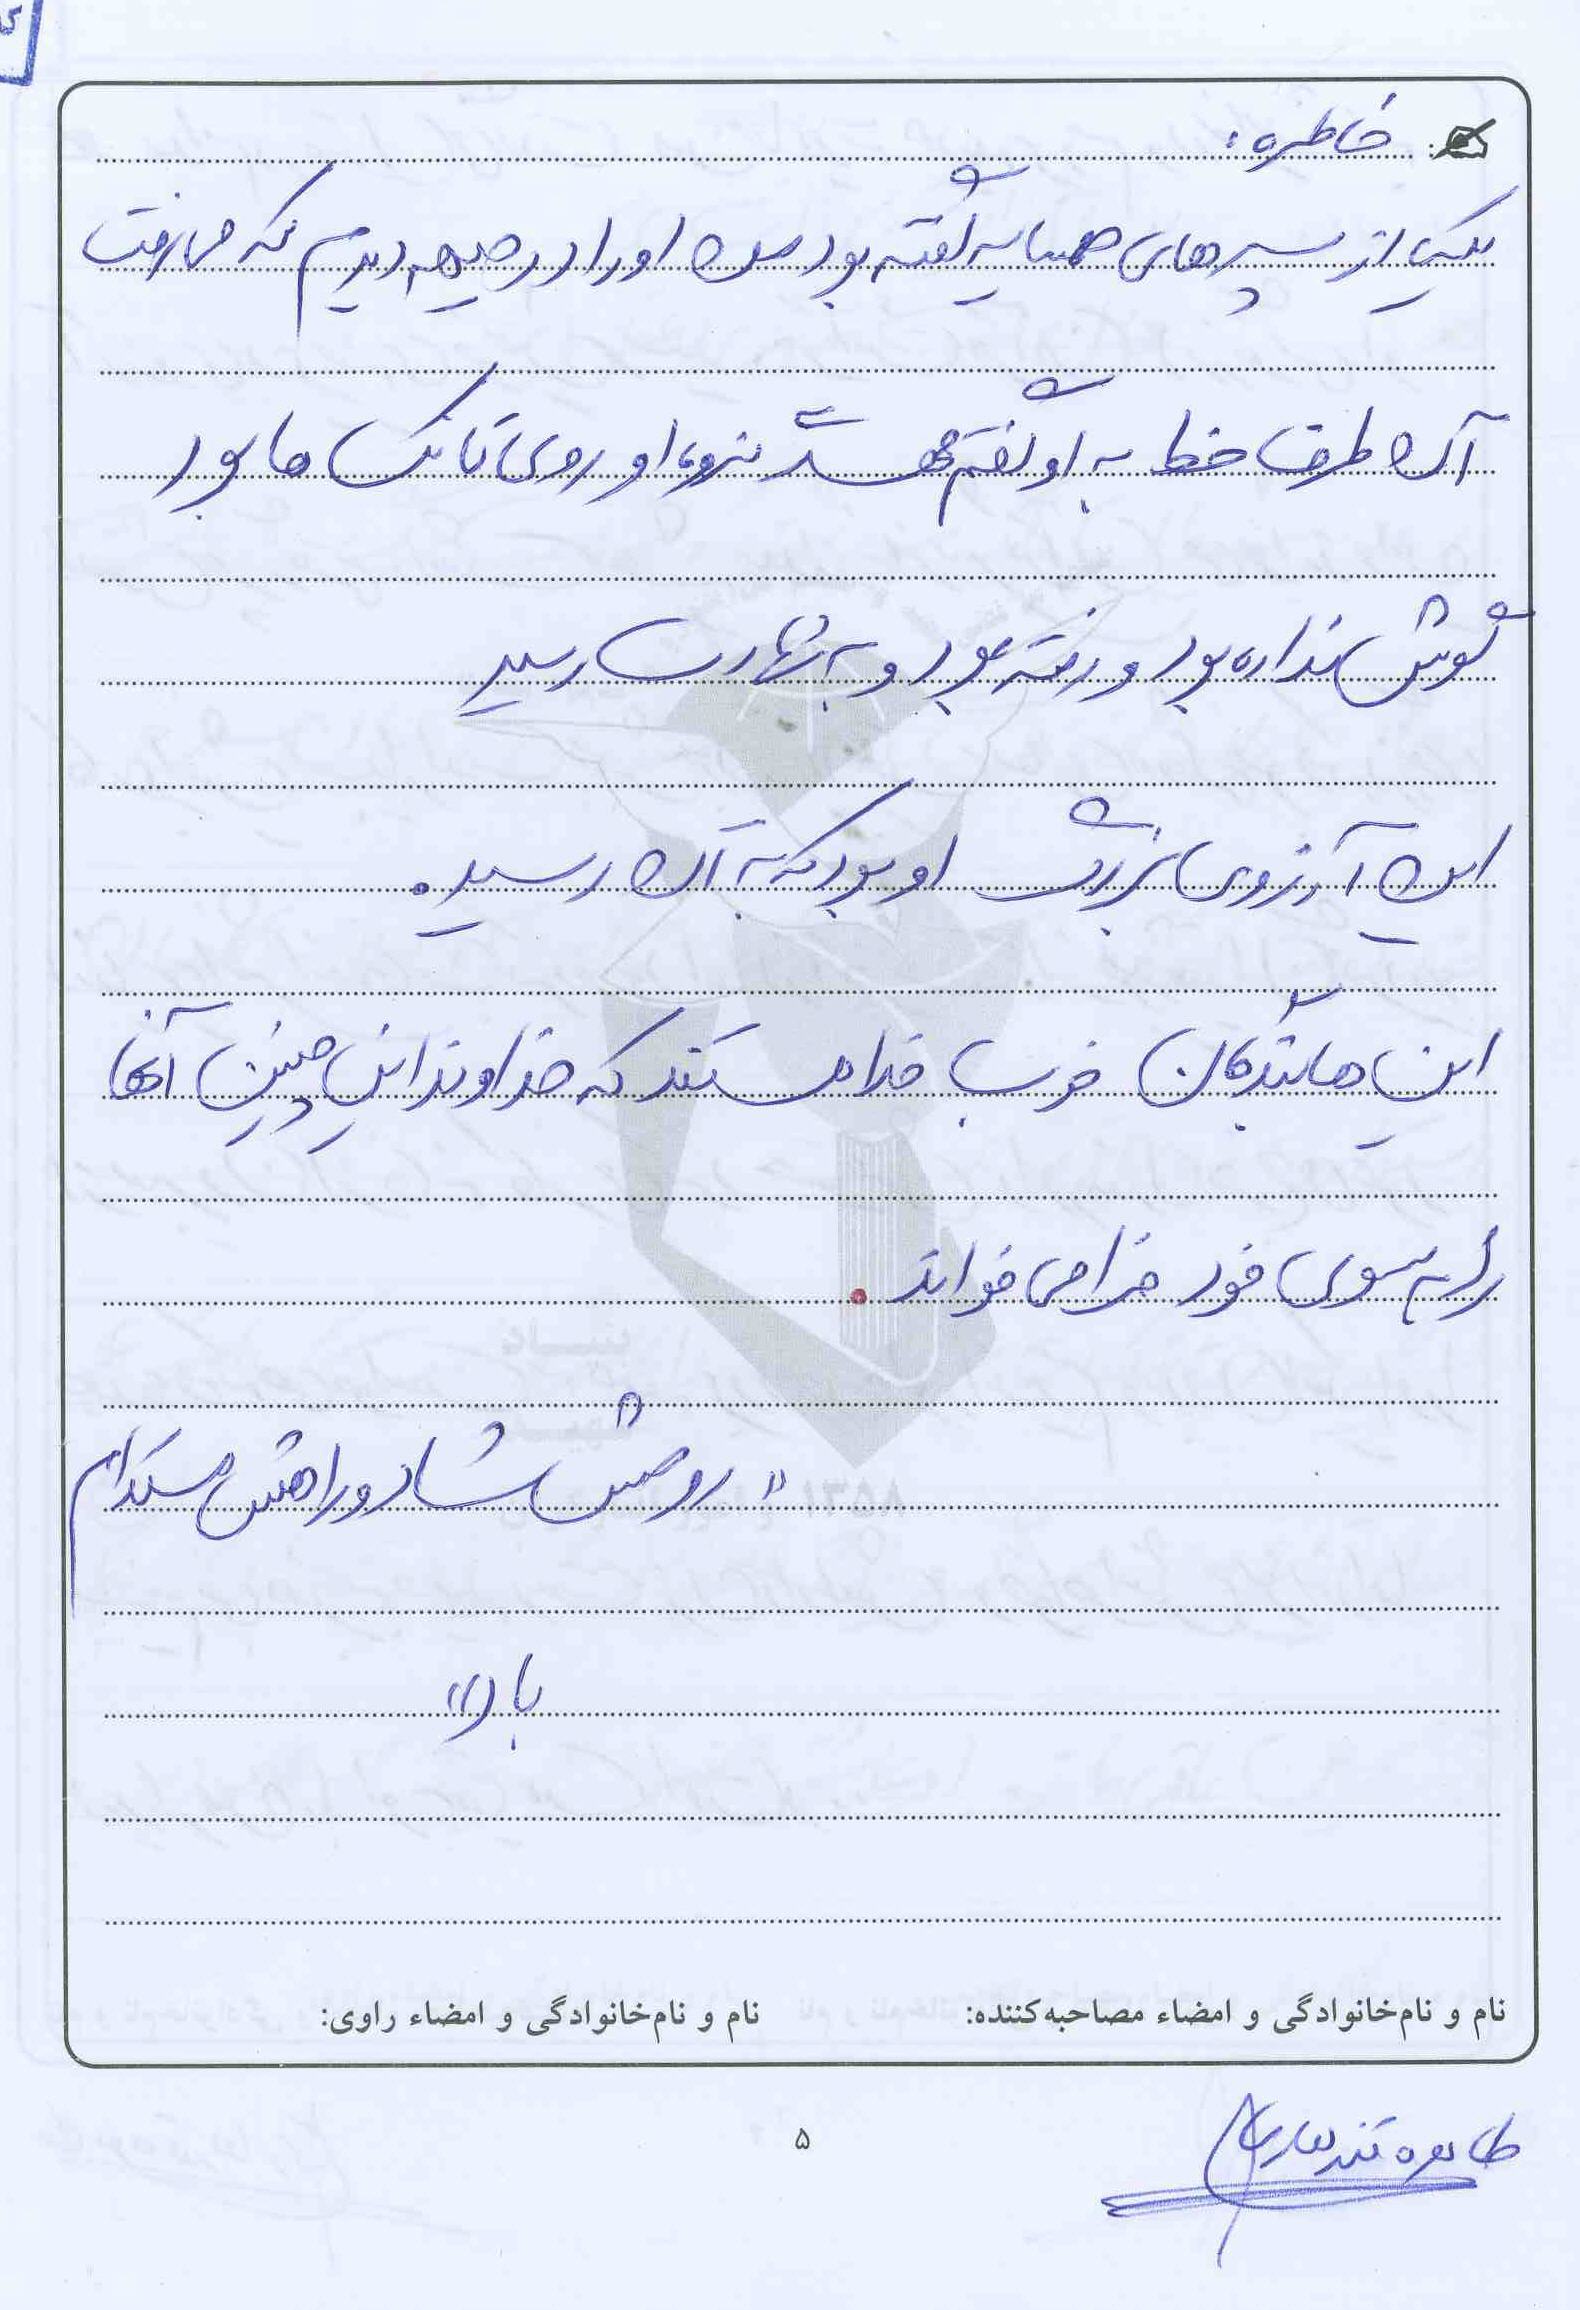 خاطره:
یکی از پسرهای همسایه گفته بود من او را در جبهه دیدم که می‌رفت
آن طرف خط به او گفتم نرو، او روی تانک ها بود
گوش نداده بود و رفته بود و به شهادت رسید
این آرزوی بزرگ او بود که به آن رسید.
این ها بندگان خوب خدا هستند که خداوند این چنین آنها
را به سوی خود فرا می خواند.
"روحش شاد و راهش مستدام
باد"
نام و نام‌خانوادگی و امضاء مصاحبه‌کننده:
نام و نام‌خانوادگی و امضاء راوی:
طاهره
۵